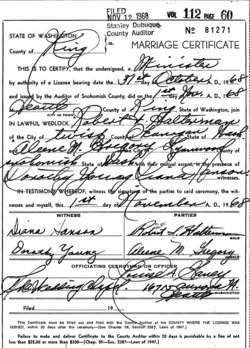 FILED
NOV 12 1968 VOL 112 PAGE 60
Stanley Dubuque
County Auditor No 81271
STATE OF WASHINGTON
ss.
County of King
MARRIAGE CERTIFICATE
THIS IS TO CERTIFY, that the undersigned, a Minister
by authority of a License bearing date the 31st October A. D., 1968
and issued by the Auditor of Snohomish County, did on the 1st Nov. A. D., 1968
at Seattle County of King State of Washington, join
IN LAWFUL WEDLOCK, Robert L. Halterman
of the City of Twisp Okanogan Wash
Aleene M. Gregory Lynnwood
Snohomish State Wash with their mutual assent, in the presence of
Dorothy Young Diana Hanson
IN TESTIMONY WHEREOF, witness the signature of the parties to said ceremony, the wit-
nesses and myself, this 1st November A. D., 1968
WITNESS PARTIES
Diana Hanson Robert L Halterman
Dorothy Young Aleene M. Gregory
OFFICIATING CLERGYMAN OR OFFICER
16715
Seattle
Filed 19
This Certificate must be filled out and filed with the County Auditor of the COUNTY WHERE THE LICENSE WAS
ISSUED, within 30 days after the ceremony—(See Chapter 59, Section 2382, Laws of 1947.)
Failure to make and deliver Certificate to the County Auditor within 30 days is punishable by a fine of not
less than $25.00 or more than $300—(Chap. 59—Sec. 2387—Laws of 1947.)